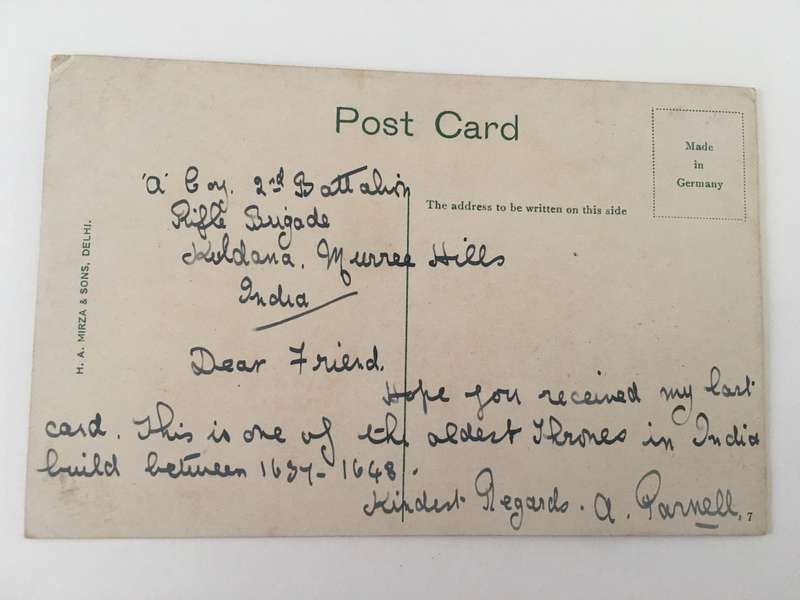 Post Card
Made
in
Germany
The address to be written on this side
H. A. MIRZA & SONS, DELHI.
'A' Coy. 2nd Battalion
Rifle Brigade
Kuldana. Murree Hills
India
Dear Friend.
Hope you received my last
card. This is one of the oldest Thrones in India
build between 1637-1648.
Kindest Regards. A. Parnell
7